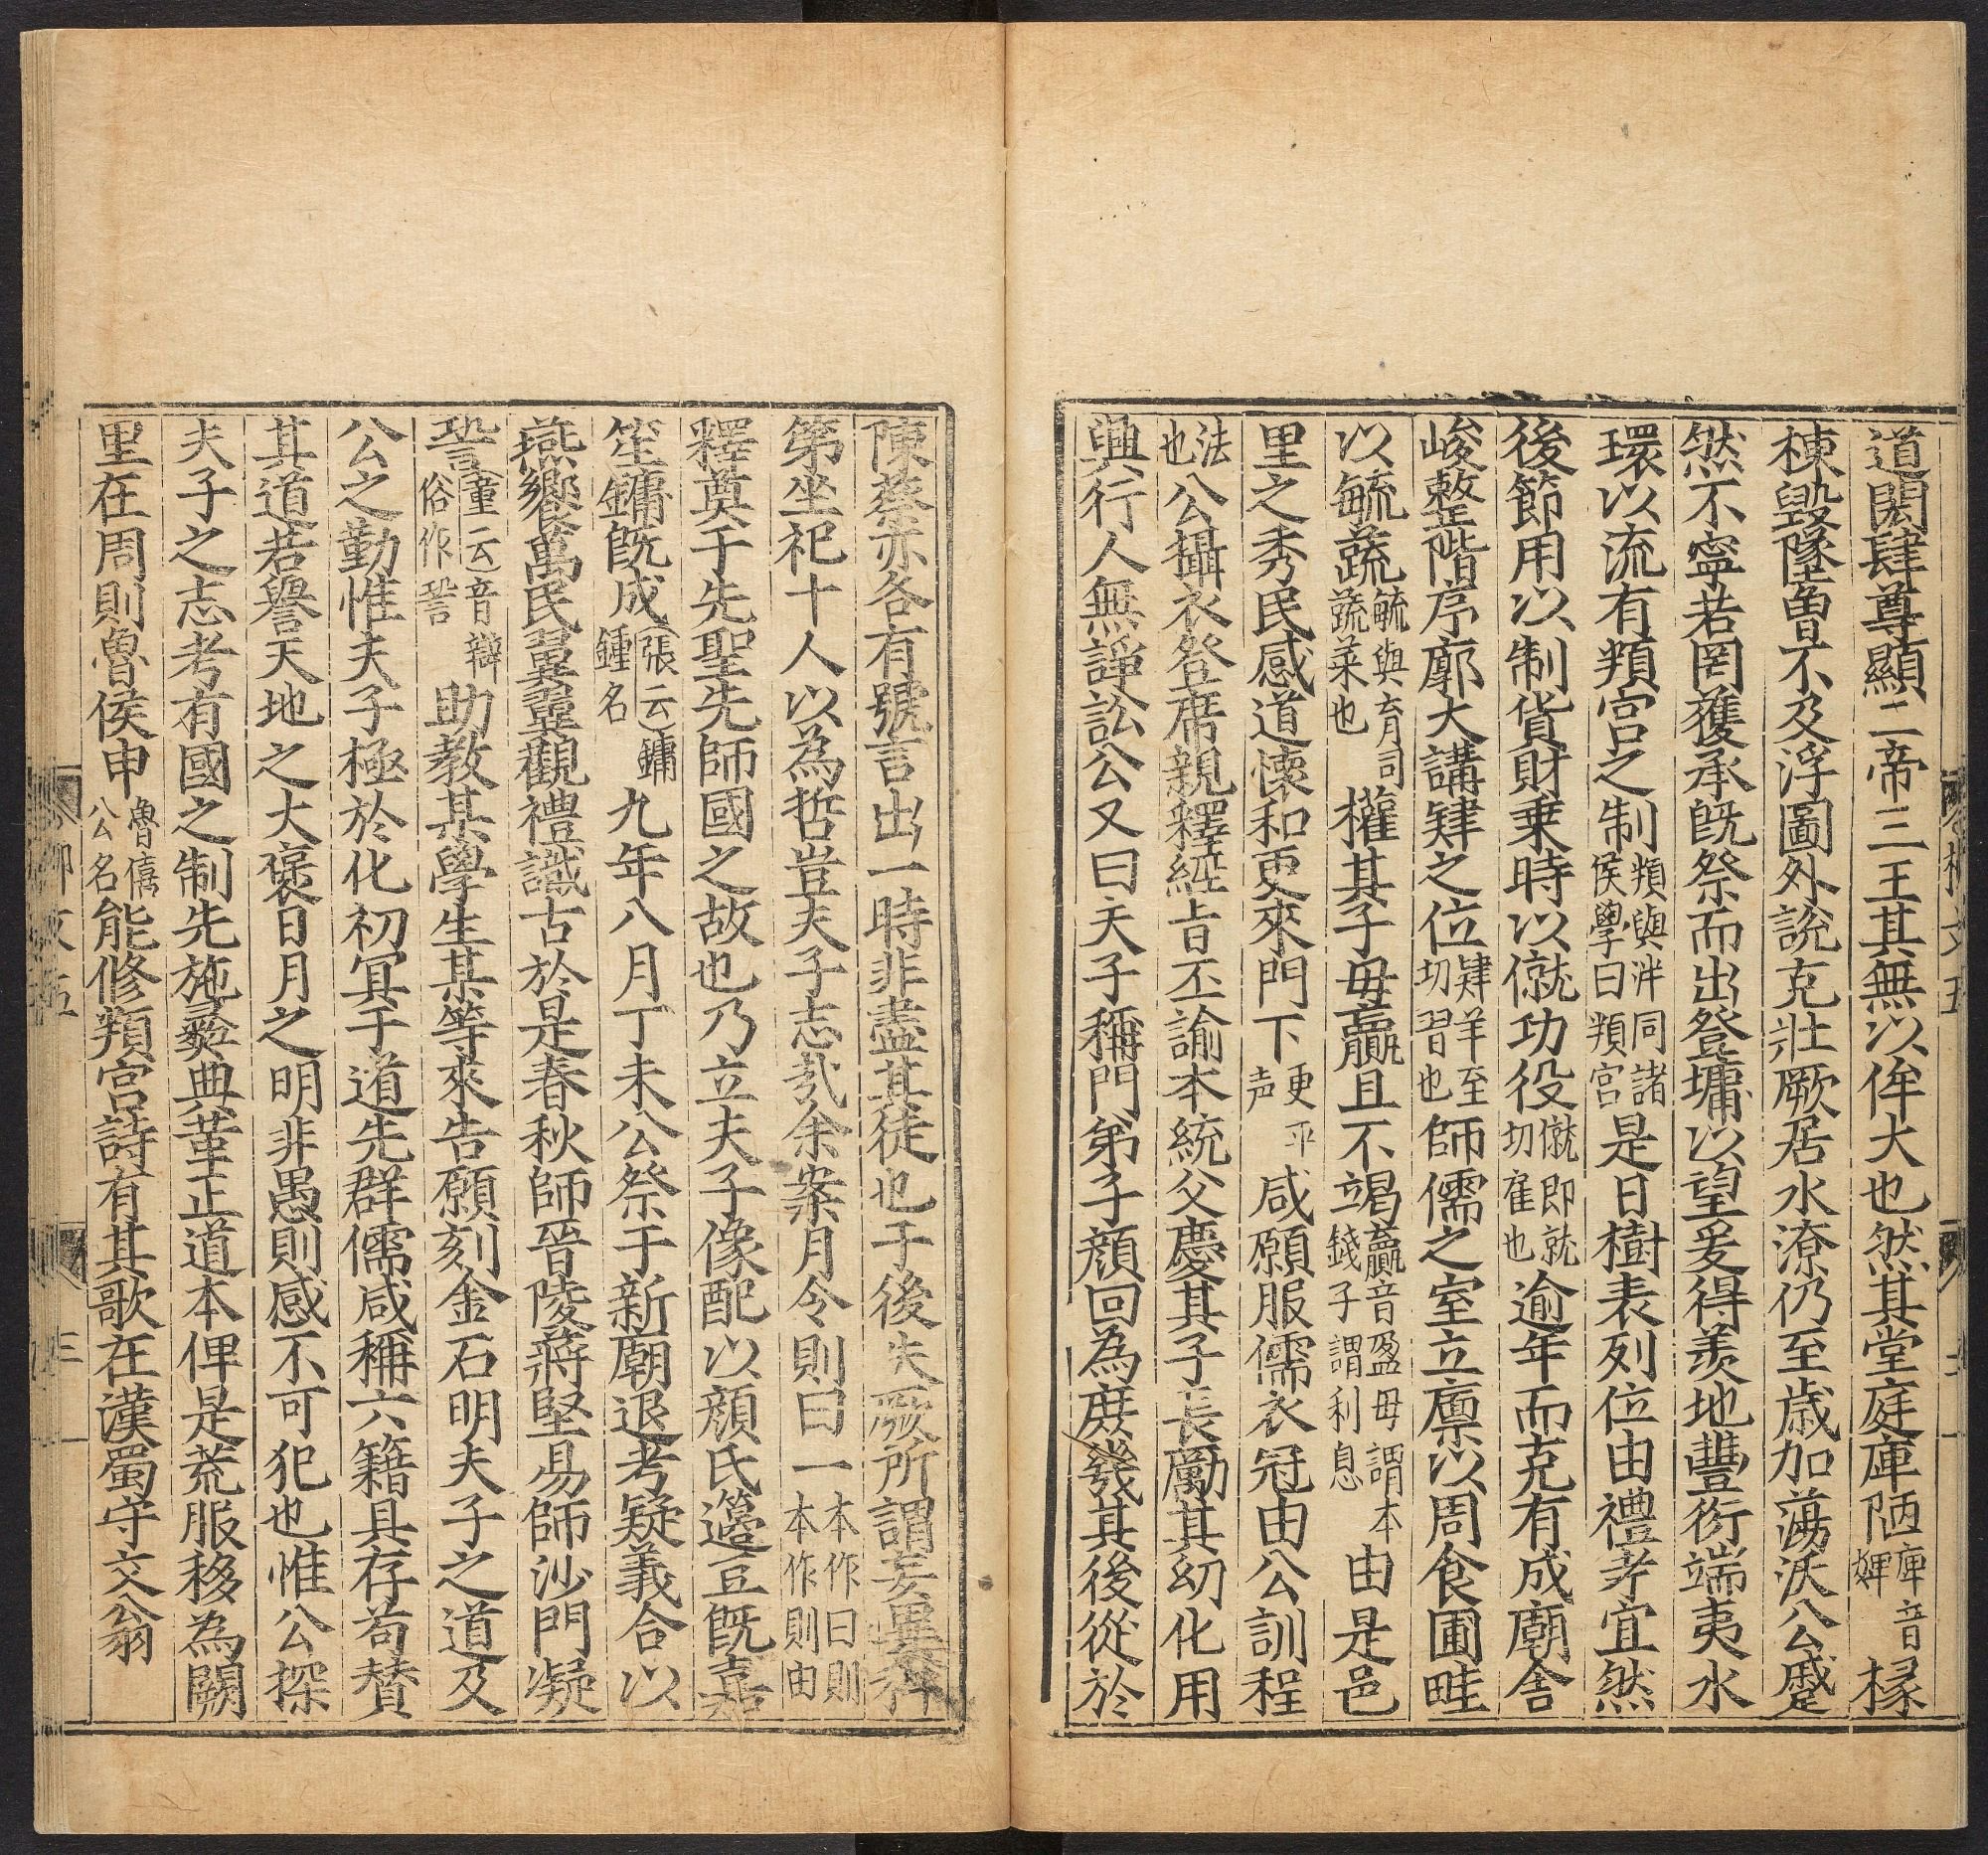 道閎肆尊顯二帝三王其無以侔大也然其堂庭庳陋庳音婢椽
棟毀墜曽不及浮圖外說克壯厥居水潦仍至歲加蕩沃公蹙
然不寧若罔獲承旣祭而出登墉以望爰得羨地豐衍端夷水
環以流有頖宮之制頖與泮同諸侯學曰頖宮是日樹表列位由禮考宜然
後節用以制貨財乗時以僦功役僦即就切雇也逾年而克有成廟舍
峻整階序廓大講肄之位肄羊至切習也師儒之室立廪以周食圃畦
以毓蔬毓與育同蔬菜也權其子毋贏且不竭贏音盈毋謂本錢子謂利息由是邑
里之秀民感道懷和更來門下更平声咸願服儒衣冠由公訓程
法也公攝衣登席親釋經旨丕諭本統父慶其子長勵其幼化用
興行人無諍訟公又曰夫子稱門弟子顔回為庶幾其後從於
陳蔡亦各有號言出一時非盡其徒也于後失厥所謂妄異科
第坐祀十人以為哲豈夫子志哉余案月令則曰一本作曰則一本作則由
釋奠于先聖先師國之故也乃立夫子像配以顔氏籩豆旣嘉
笙鏞旣成張云鏞鍾名九年八月丁未公祭于新廟退考疑義合以
燕饗萬民翼翼觀禮識古於是春秋師晉陵蔣堅易師沙門凝
䛒童云音辯俗作䛒助教某學生某等來告願刻金石明夫子之道及
公之勤惟夫子極於化初冥于道先群儒咸稱六籍具存苟賛
其道若譽天地之大襃日月之明非愚則惑不可犯也惟公探
夫子之志考有國之制先施彛典革正道本俾是荒服移為闕
里在周則魯侯申魯僖公名能修頖宮詩有其歌在漢蜀守文翁
柳文五
三